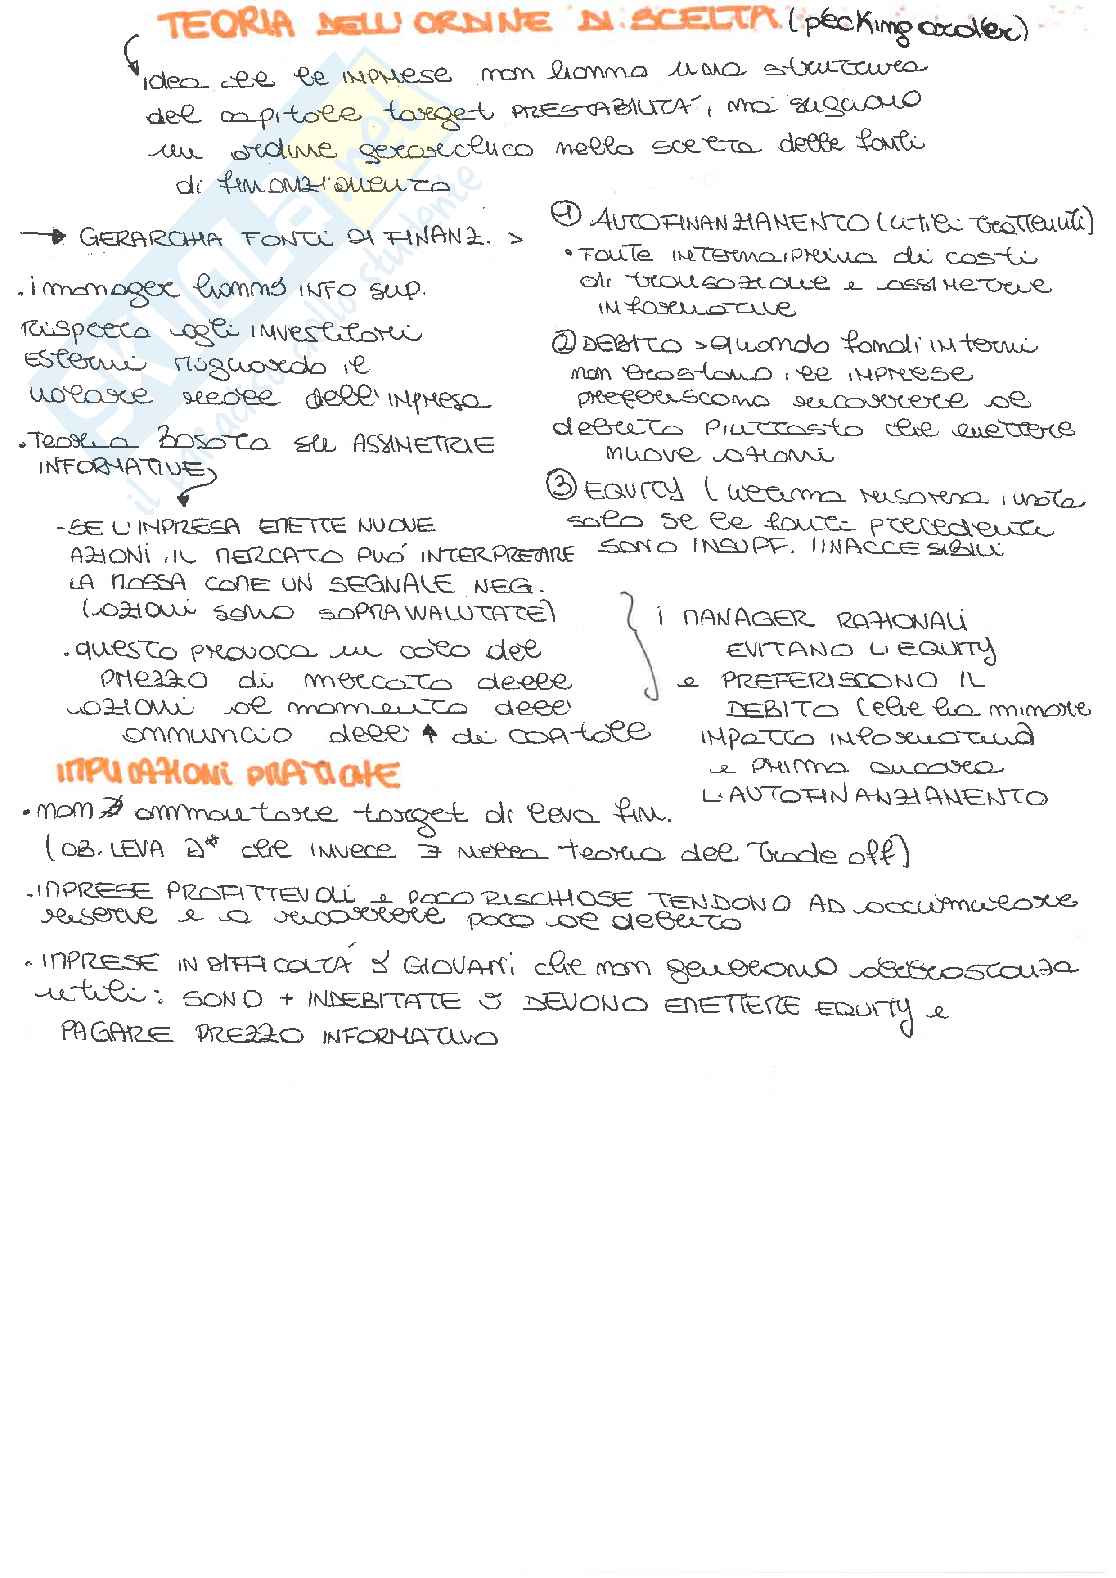 TEORIA DELL'ORDINE DI SCELTA (pecking order)
idea che le IMPRESE non hanno una struttura
del capitale target PRESTABILITA', ma seguano
un ordine gerarchico nella scelta delle fonti
di finanziamento
→ GERARCHIA FONTI DI FINANZ. >
. i manager hanno INFO sup.
rispetto agli investitori
esterni riguardo il
valore reale dell'impresa
. Teoria Basata su ASSIMETRIE
INFORMATIVE
- SE L'IMPRESA EMETTE NUOVE
AZIONI, IL MERCATO PUÓ INTERPRETARE
LA MOSSA COME UN SEGNALE NEG.
(azioni sono SOPRAVVALUTATE)
. questo provoca un calo del
PREZZO di mercato delle
azioni al momento dell'
annuncio dell' ↑ di capitale
① AUTOFINANZIAMENTO (utili trattenuti)
• FONTE INTERNA, priva di costi
di transazione e assimetrie
informative
② DEBITO > quando fondi interni
non bastano, le IMPRESE
preferiscono ricorrere al
debito piuttosto che emettere
nuove azioni
③ EQUITY (ultima risorsa, usata
solo se le fonti precedenti
SONO INSUFF. / INACCESSIBILI
} i MANAGER RAZIONALI
EVITANO L'EQUITY
e PREFERISCONO IL
DEBITO (che ha minore
impatto informativo)
e prima ancora
L'AUTOFINANZIAMENTO
IMPLICAZIONI PRATICHE
• non ∃ ammontare target di leva fin.
(OB. LEVA D* che invece ∃ nella teoria del Trade off)
. IMPRESE PROFITTEVOLI e POCO RISCHIOSE TENDONO AD accumulare
riserve e a ricorrere poco al debito
. IMPRESE IN DIFFICOLTÁ & GIOVANI che non generano abbastanza
utili: SONO + INDEBITATE & DEVONO EMETTERE EQUITY e
PAGARE PREZZO INFORMATIVO
SKUOLA.net
il paradiso dello studente